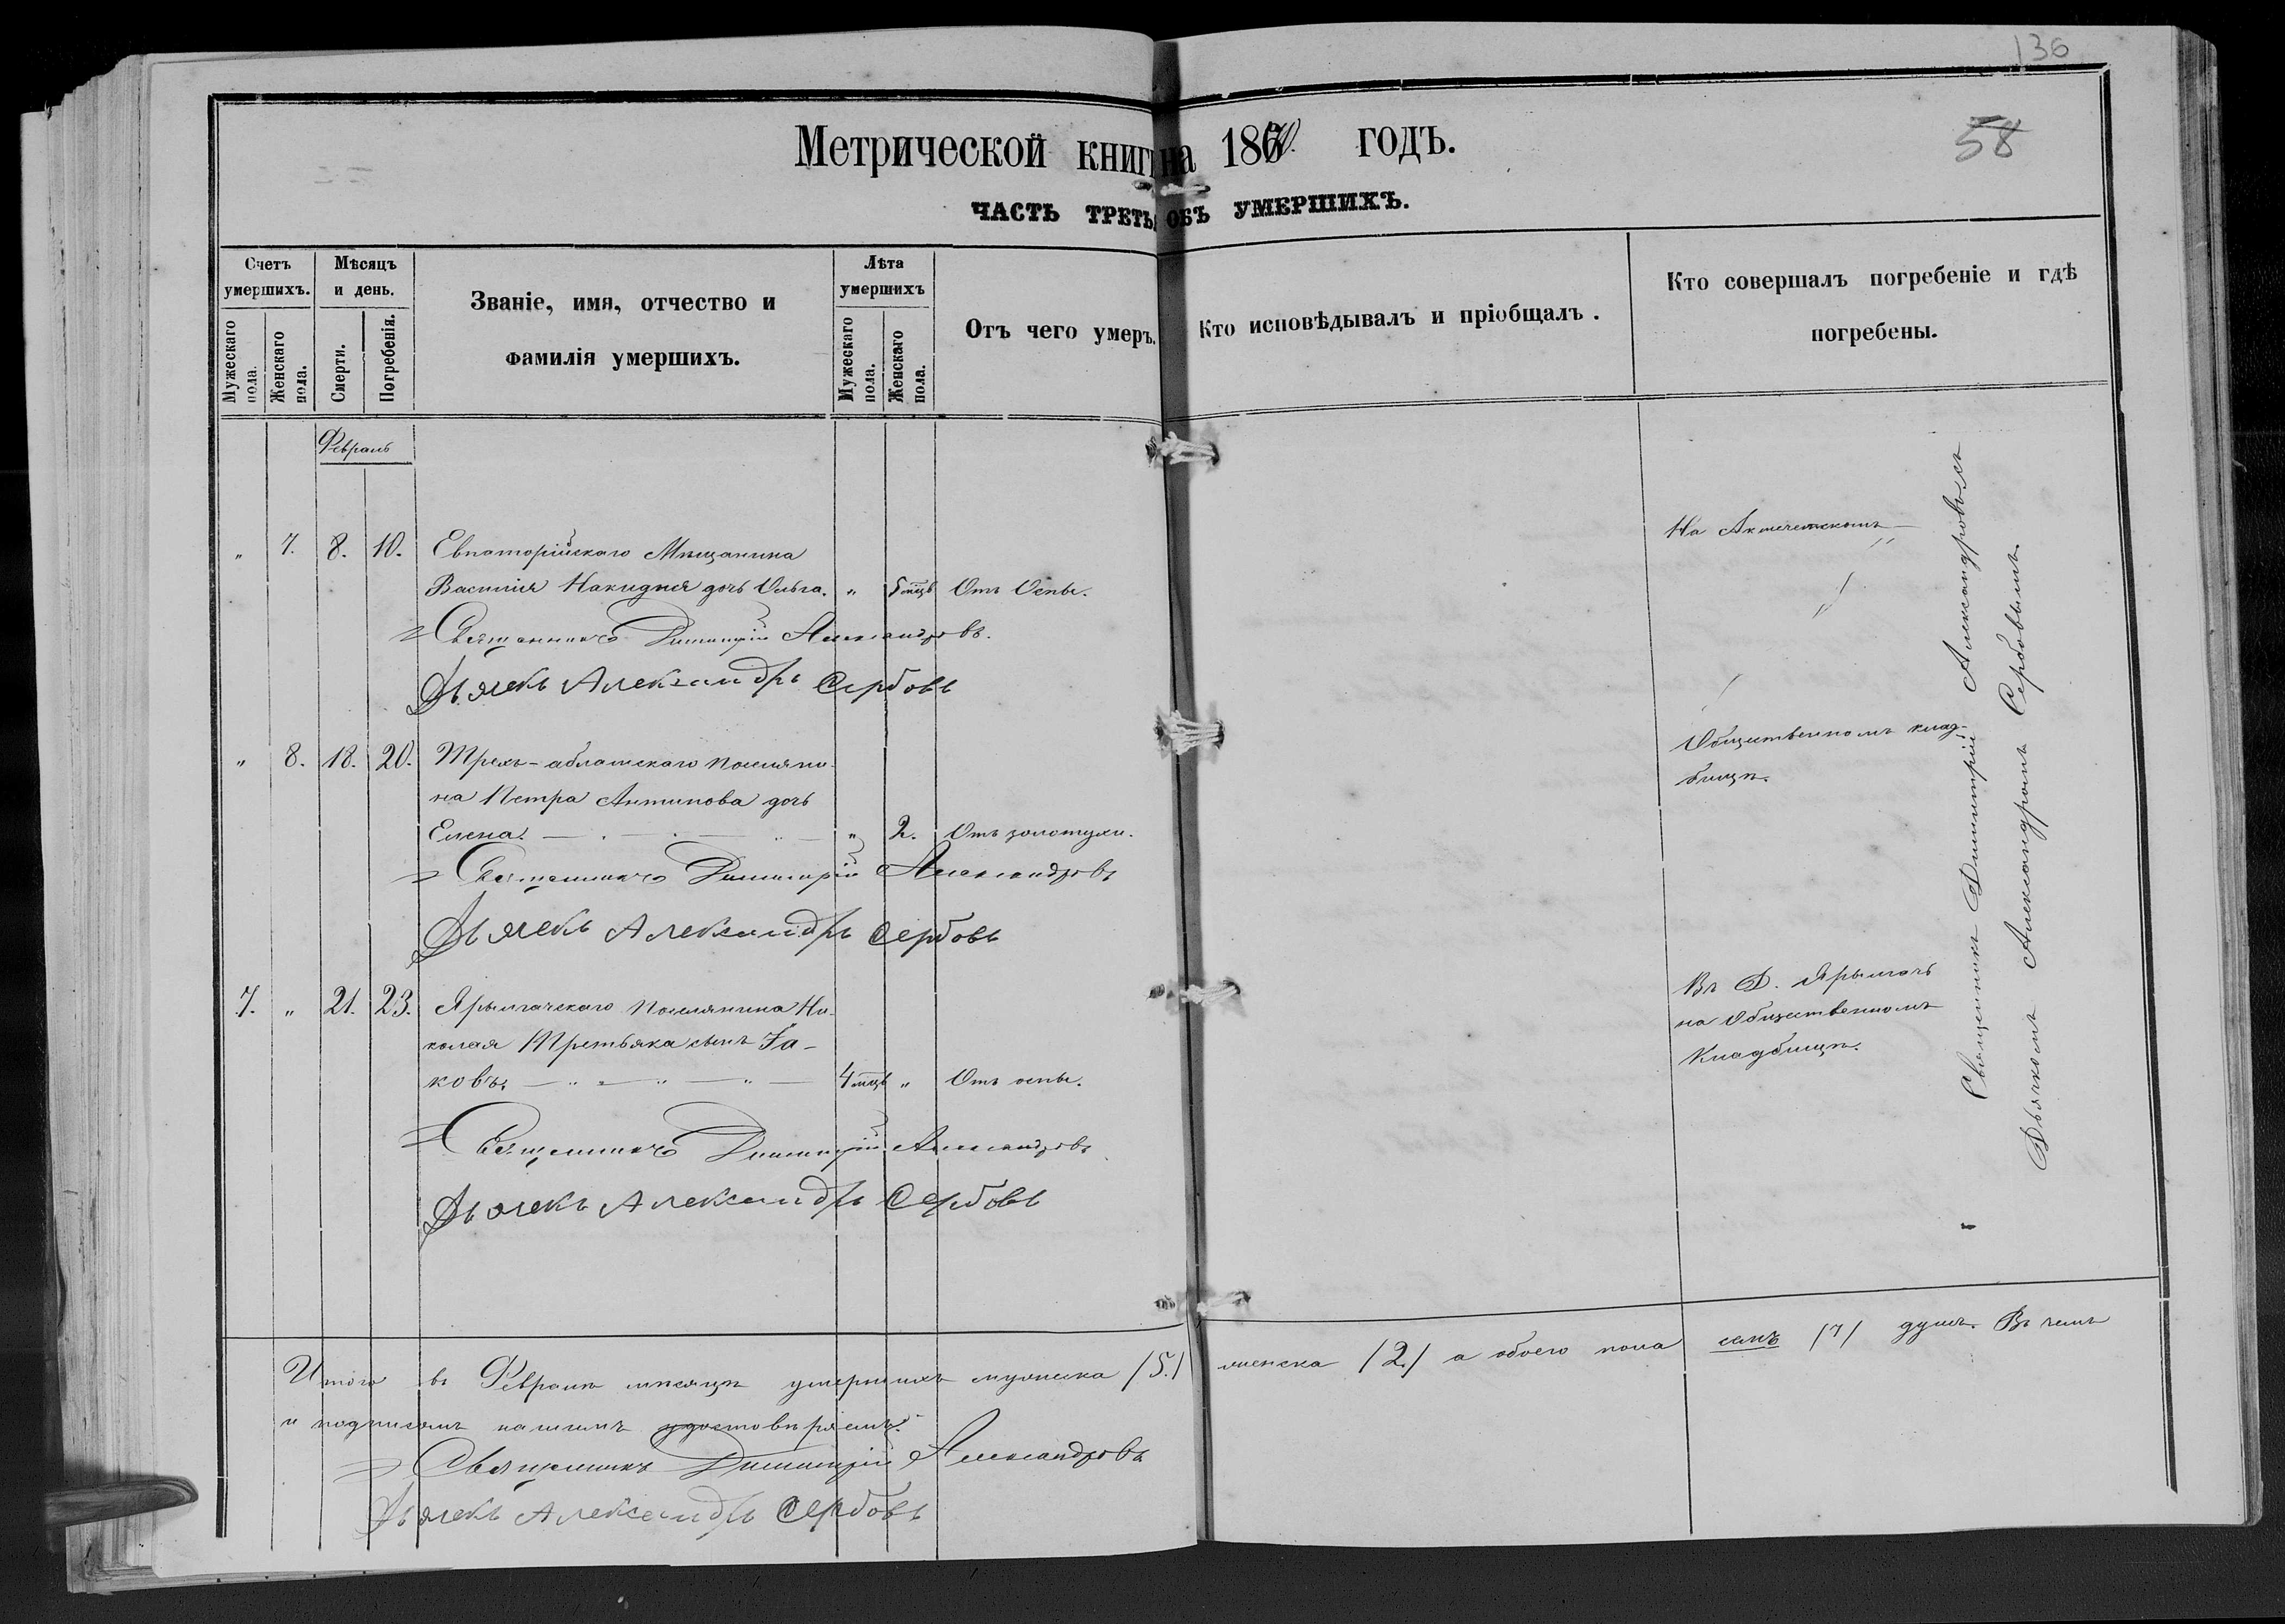 136
58
Метрической книги на 1870. годъ.
ЧАСТЬ ТРЕТЬЯ ОБЪ УМЕРШИХЪ.
Счетъ умершихъ.
Мужескаго пола.
Женскаго пола.
Мѣсяцъ и день.
Смерти.
Погребенія.
Званіе, имя, отчество и
фамилія умершихъ.
Лѣта умершихъ
Мужескаго пола.
Женскаго пола.
Отъ чего умеръ.
Кто исповѣдывалъ и пріобщалъ.
Кто совершалъ погребеніе и гдѣ
погребены.
Февраль
" 7. 8. 10. Евпаторійскаго Мѣщанина
Василія Накидня дочь Ольга. " 5 мцъ Отъ Оспы.
Священникъ Димитрій Александровъ.
Дьячекъ Александръ Сербовъ
На Акмечетскомъ
" 8. 18. 20. Трехъ-абламскаго поселяни-
на Петра Антипова дочь
Елена. " 2. Отъ золотухи.
Священникъ Димитрій Александровъ
Дьячекъ Александръ Сербовъ
Общественномъ клад-
бищѣ.
7. " 21. 23. Ярылгачскаго поселянина Ни-
колая Третьяка сынъ Іа-
ковъ. 4 мцъ " Отъ оспы.
Священникъ Димитрій Александровъ
Дьячекъ Александръ Сербовъ
Въ Д. Ярылгачъ
на Общественномъ
Кладбищѣ.
Священникъ Димитрій Александровымъ
Дьячкомъ Александромъ Сербовымъ.
Итого въ Февралѣ мѣсяцѣ умершихъ мужеска /5./ женска /2./ а обоего пола семь /7/ душъ. Въ чемъ
и подписомъ нашимъ удостовѣряемъ.
Священникъ Димитрій Александровъ
Дьячекъ Александръ Сербовъ